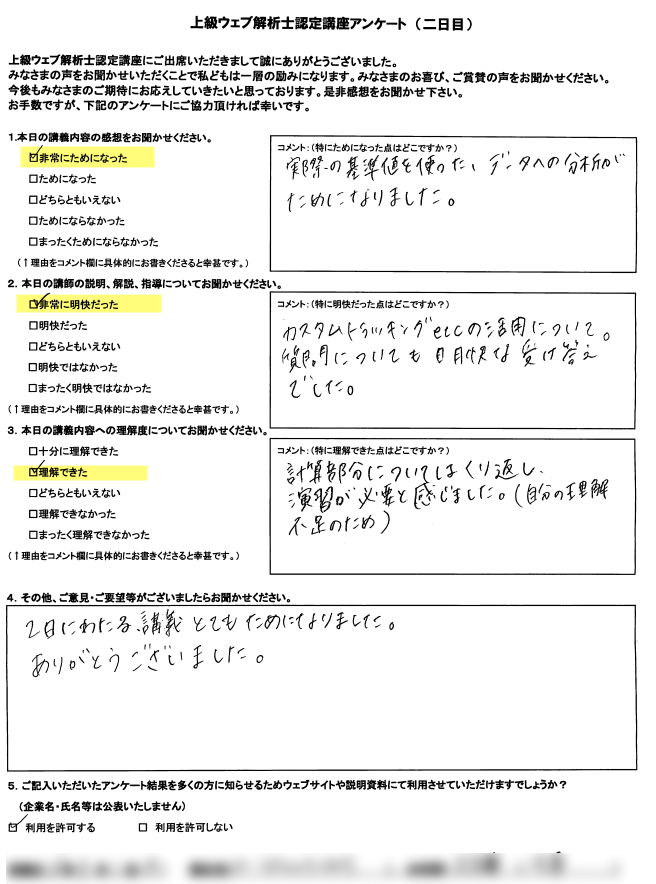 上級ウェブ解析士認定講座アンケート（二日目）
上級ウェブ解析士認定講座にご出席いただきまして誠にありがとうございました。
みなさまの声をお聞かせいただくことで私どもは一層の励みになります。みなさまのお喜び、ご賞賛の声をお聞かせください。
今後もみなさまのご期待にお応えしていきたいと思っております。是非感想をお聞かせ下さい。
お手数ですが、下記のアンケートにご協力頂ければ幸いです。
1.本日の講義内容の感想をお聞かせください。
☑非常にためになった
□ためになった
□どちらともいえない
□ためにならなかった
□まったくためにならなかった
(↑理由をコメント欄に具体的にお書きくださると幸甚です。)
コメント:(特にためになった点はどこですか？)
実際の基準値を使った、データへの分析が
ためになりました。
2. 本日の講師の説明、解説、指導についてお聞かせください。
☑非常に明快だった
□明快だった
□どちらともいえない
□明快ではなかった
□まったく明快ではなかった
(↑理由をコメント欄に具体的にお書きくださると幸甚です。)
コメント:(特に明快だった点はどこですか？)
カスタムトラッキングetcの活用について。
質問についても明快な受け答え
でした。
3. 本日の講義内容への理解度についてお聞かせください。
□十分に理解できた
☑理解できた
□どちらともいえない
□理解できなかった
□まったく理解できなかった
(↑理由をコメント欄に具体的にお書きくださると幸甚です。)
コメント:(特に理解できた点はどこですか？)
計算部分についてはくり返し、
演習が必要と感じました。(自分の理解
不足のため)
4. その他、ご意見・ご要望等がございましたらお聞かせください。
2日にわたる講義とてもためになりました。
ありがとうございました。
5. ご記入いただいたアンケート結果を多くの方に知らせるためウェブサイトや説明資料にて利用させていただけますでしょうか？
(企業名・氏名等は公表いたしません)
☑ 利用を許可する　□ 利用を許可しない